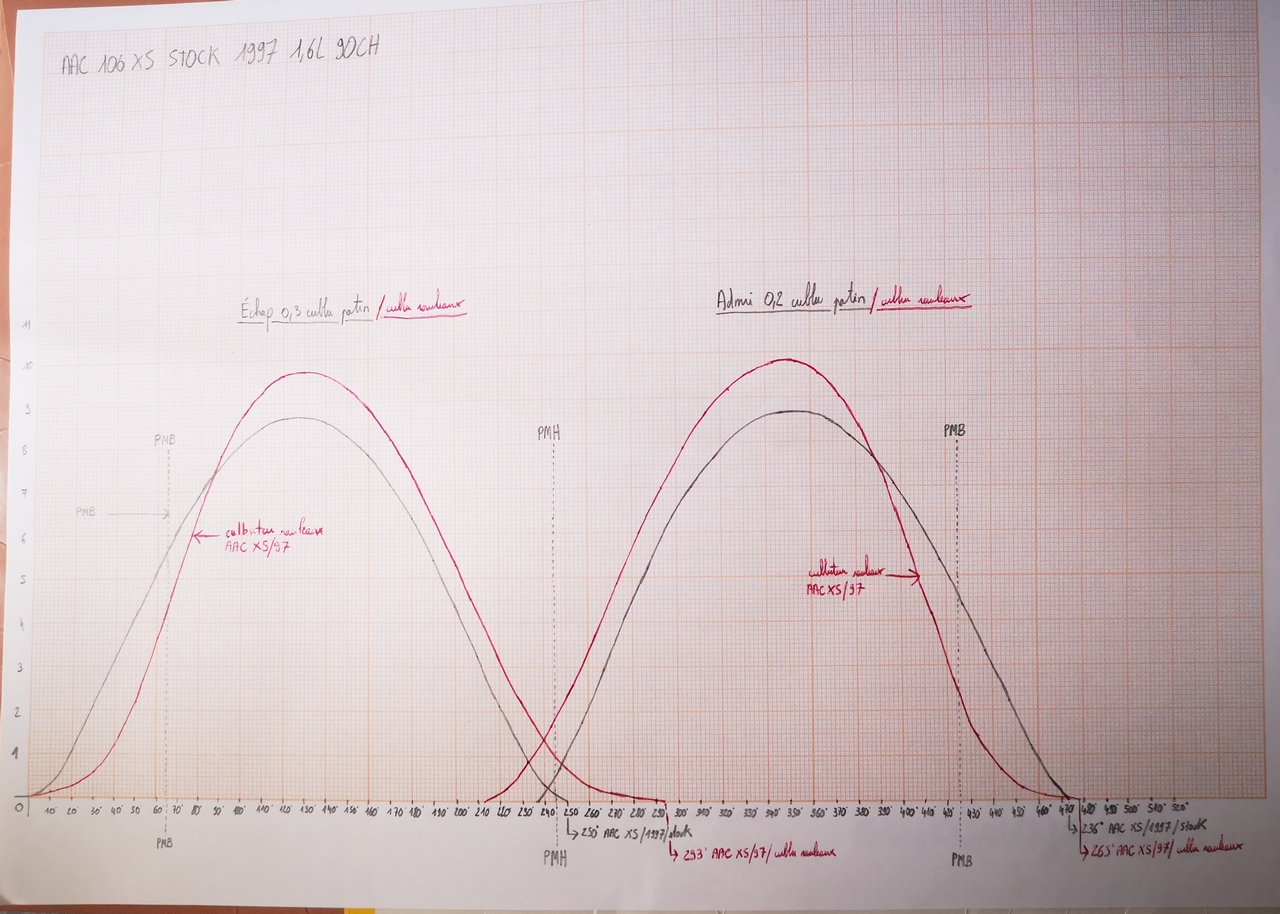 AAC 106 XS STOCK 1997 1,6L 90CH
Échap 0,3 culbu patin / culbu rouleaux
Admi 0,2 culbu patin / culbu rouleaux
11
10
9
8
7
6
5
4
3
2
1
0
PMB
PMH
PMB
PMB
culbuteur rouleaux
AAC XS/97
culbuteur rouleaux
AAC XS/97
10° 20° 30° 40° 50° 60° 70° 80° 90° 100° 110° 120° 130° 140° 150° 160° 170° 180° 190° 200° 210° 220° 230° 240° 250 260° 270° 280° 290° 300° 310° 320° 330° 340° 350° 360° 370° 380° 390° 400° 410° 420° 430° 440° 450° 460° 470° 480° 490° 500° 510° 520°
250° AAC XS/1997/stock
236° AAC XS/1997/stock
PMB
PMH
PMB
293° AAC XS/97/ culbu rouleaux
265° AAC XS/97/ culbu rouleaux